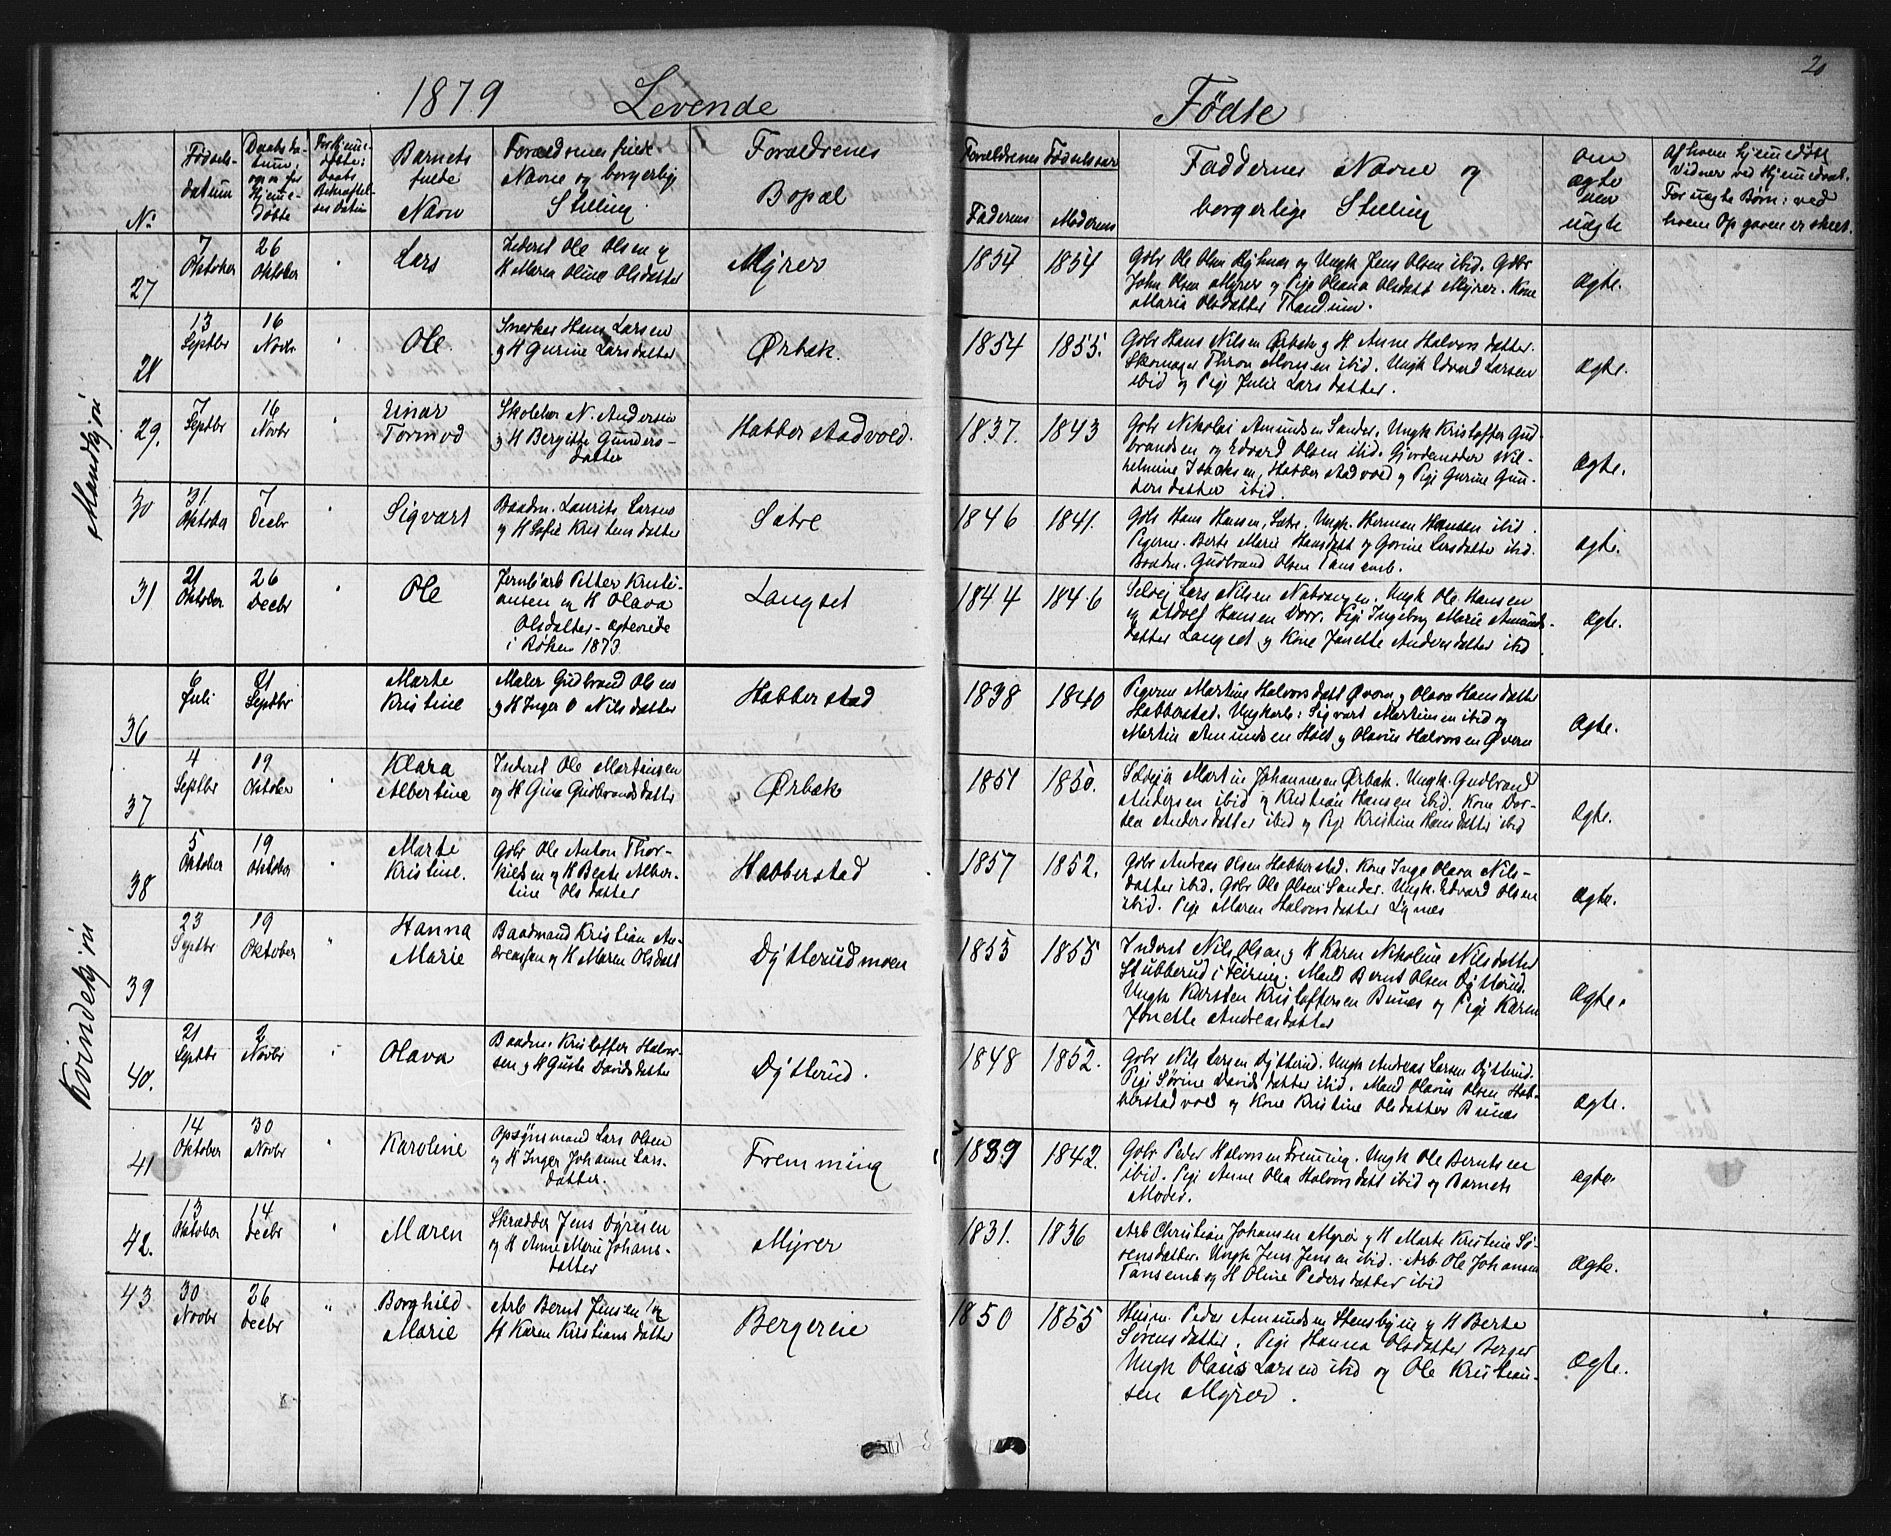 2
1879 Levende Fødte
No
Fødsels-
datum
Daabsda-
tum,
Hjemme-
døbte
Barnets
fulde
Navn
Forældrenes fulde
Navne og borgerlig
Stilling
Forældrenes
Bopæl
Forældrenes Fødselsaar
Faderens
Moderens
Faddernes Navne og
borgerlige Stilling
om
ægte
eller
uægte
Af hvem hjemmedøbt
Vidner ved Hjemmedaab.
For uægte Børn: ved
hvem Opgaven er skeet.
Mandkjøn
27
7
Oktober
26
Oktober
Lars
Inderst Ole Olsen og
H Maren Oline Olsdatter
Myrer
1854
1854
Gbr Ole Olsen og Ungk Jens Olsen ibid. Gbr
John Olsen Myrer og Pige Oleana Olsdatt Myrer. Kone
Maria Olsdatter Trandum.
Ægte.
28
13
Septbr
16
Novbr
Ole.
Snerker Hans Larsen
og H Gurine Larsdatter
Ørbæk.
1854
1855.
Gbr Hans Nilsen Ørbæk og H. Anne Halvorsdatter.
Skomager Thron Monsen ibid. Ungk Edvard Larsen
ibid og Pige Julie Larsdatter.
Ægte.
29.
7
Septbr
16
Novbr
Einar
Tormod
Skolelær N. Andersen
og H Bergitte Gunders-
datter
Habberstadvold.
1837.
1843
Gbr Nikolai Amundsen Sander. Ungk Kristoffer Gud-
brandsen og Edvard Olsen ibid. Gjordemoder Wil-
helmine Isaksen, Habberstadvold og Pige Gurine Gun-
dersdatter ibid.
Ægte.
30
31.
Oktober
7
Decbr
Sigvart
Baadm. Laurits Larsen
og H Sofie Kristensdatter
Sætre
1846
1841.
Gbr Hans Hansen, Sætre. Ungk. Herman Hansen ibid.
Pigerne. Berte Marie Hansdatt og Gorine Larsdatter ibid.
Baadm. Gudbrand Olsen Tansemb.
ægte.
31
21
Oktober
26
Decbr
Ole
Jernb:arb Petter Kristi-
ansen og H Olava
Olsdatter - Ægteviede
i Røken 1873.
Langset
1844
1846
Selvej Lars Nilsen. Ungk Ole Hansen
og Adolf Hansen Dorr. Pige Ingeborg Marie Amunds-
datter Langset og Kone Janette Andersdatter ibid
ægte.
Kvindekjøn
36
6
Juli
21
Septbr
Marte
Kristine
Maler Gudbrand Olsen
og H Inger O Nilsdatter
Habberstad
1838
1840
Pigerne Martine Halvorsdatt Øvern og Olava Hansdatter
Habberstad. Ungkarle: Sigvart Martinsen ibid og
Martin Amundsen Holt og Olavus Halvorsen Øvern
Ægte.
37
4
Septbr
19
Oktober
Klara
Albertine
Inderst Ole Martinsen
og H Gina Gudbrandsdatter
Ørbæk
1851
1850.
Selvejer Martin Johannesen Ørbæk. Ungk. Gudbrand
Andersen ibid og Kristian Hansen ibid. Kone Dor-
tea Andersdatter ibid og Pige Kristine Hansdatter ibid
Ægte.
38
5
Oktober
19
Oktober
Marte
Kristine.
Gbr Ole Anton Thor-
kildsen og H Beate Alber-
tine Olsdatter
Habberstad
1857
1852.
Gbr Andreas Olsen Habberstad. Kone Inge Olava Nils-
datter ibid. Gbr Ole Olsen Sander. Ungk. Edvard Olsen
ibid. Pige Maren Halvorsdatter Lynæs
Ægte.
39
23
Septbr
19
Oktober
Hanna
Marie
Baadmand Kristian An-
dreassen og H Maren Olsdatt
Dytterudmoen
1853
1855
Inderst Nils Olsen og H Karen Nikoline Nilsdatter
Stubberud i Feiring. Mand Bernt Olsen Dytterud.
Ungk Karsten Kristoffersen Bunæs og Pige Karen
Janette Andreasdatter
Ægte.
40.
21
Septbr
2
Novbr
Olava
Baadm. Kristoffer Halvor-
sen og H Guste Davidsdatter
Dytterud.
1848
1852.
Gbr Nils Larsen Dytterud. Ungk Andreas Larsen Dytterud.
Pige Sørine Davidsdatter ibid. Mand Olavus Olsen Hab-
berstadvold og Kone Kristine Olsdatter Bunæs
Ægte.
41
14
Oktober
30
Novbr
Karoline
Opsynsmand Lars Olsen
og H Inger Johanne Lars-
datter.
Fremming
1839
1842.
Gbr Peder Halvorsen Fremming. Ungk Ole Berntsen
ibid. Pige Anne Olea Halvorsdatt ibid og Barnets
Moder.
ægte.
42.
13
Oktober
14
Decbr
Maren
Skrædder Jens Jørgensen
og H Anne Marie Johans-
datter
Myrer
1831.
1836
Arb Christian Johansen Myrer og H Marte Kristine Sø-
rensdatter. Ungk Jens Jensen ibid. Arb Ole Johansen
Tansemb og H Oline Pedersdatter ibid
Ægte.
43
30
Novbr
26
Decbr
Borghild
Marie
Arb Bernt Jensen og
H Karen Kristiansdatter
Bergereie
1850
1855
Husm. Peder Amundsen Stensbyeie og H Berte
Sørensdatter. Pige Hanna Olsdatter Berger
Ungk Olaus Larsen ibid og Ole Kristian-
sen Myrer.
Ægte.